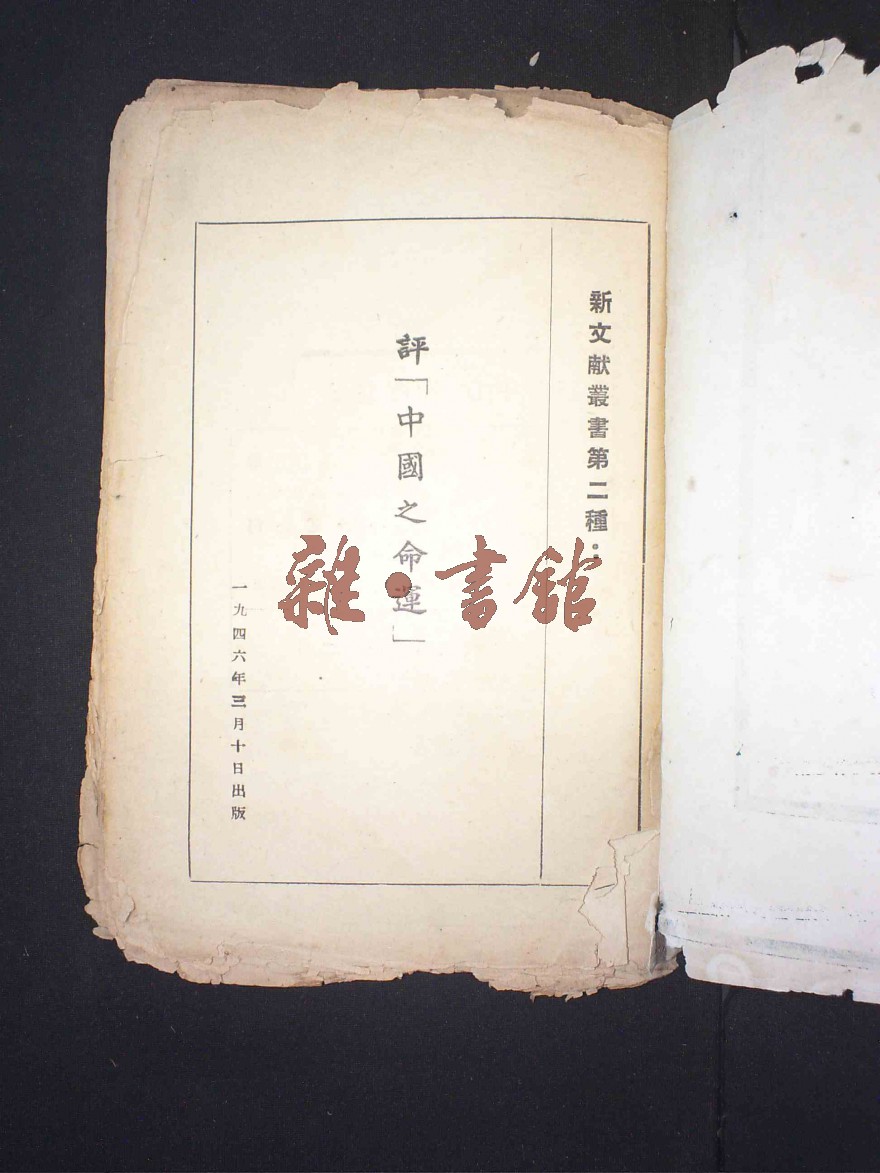 新文献叢書第二種：
評「中國之命運」
一九四六年三月十日出版
雜·書館